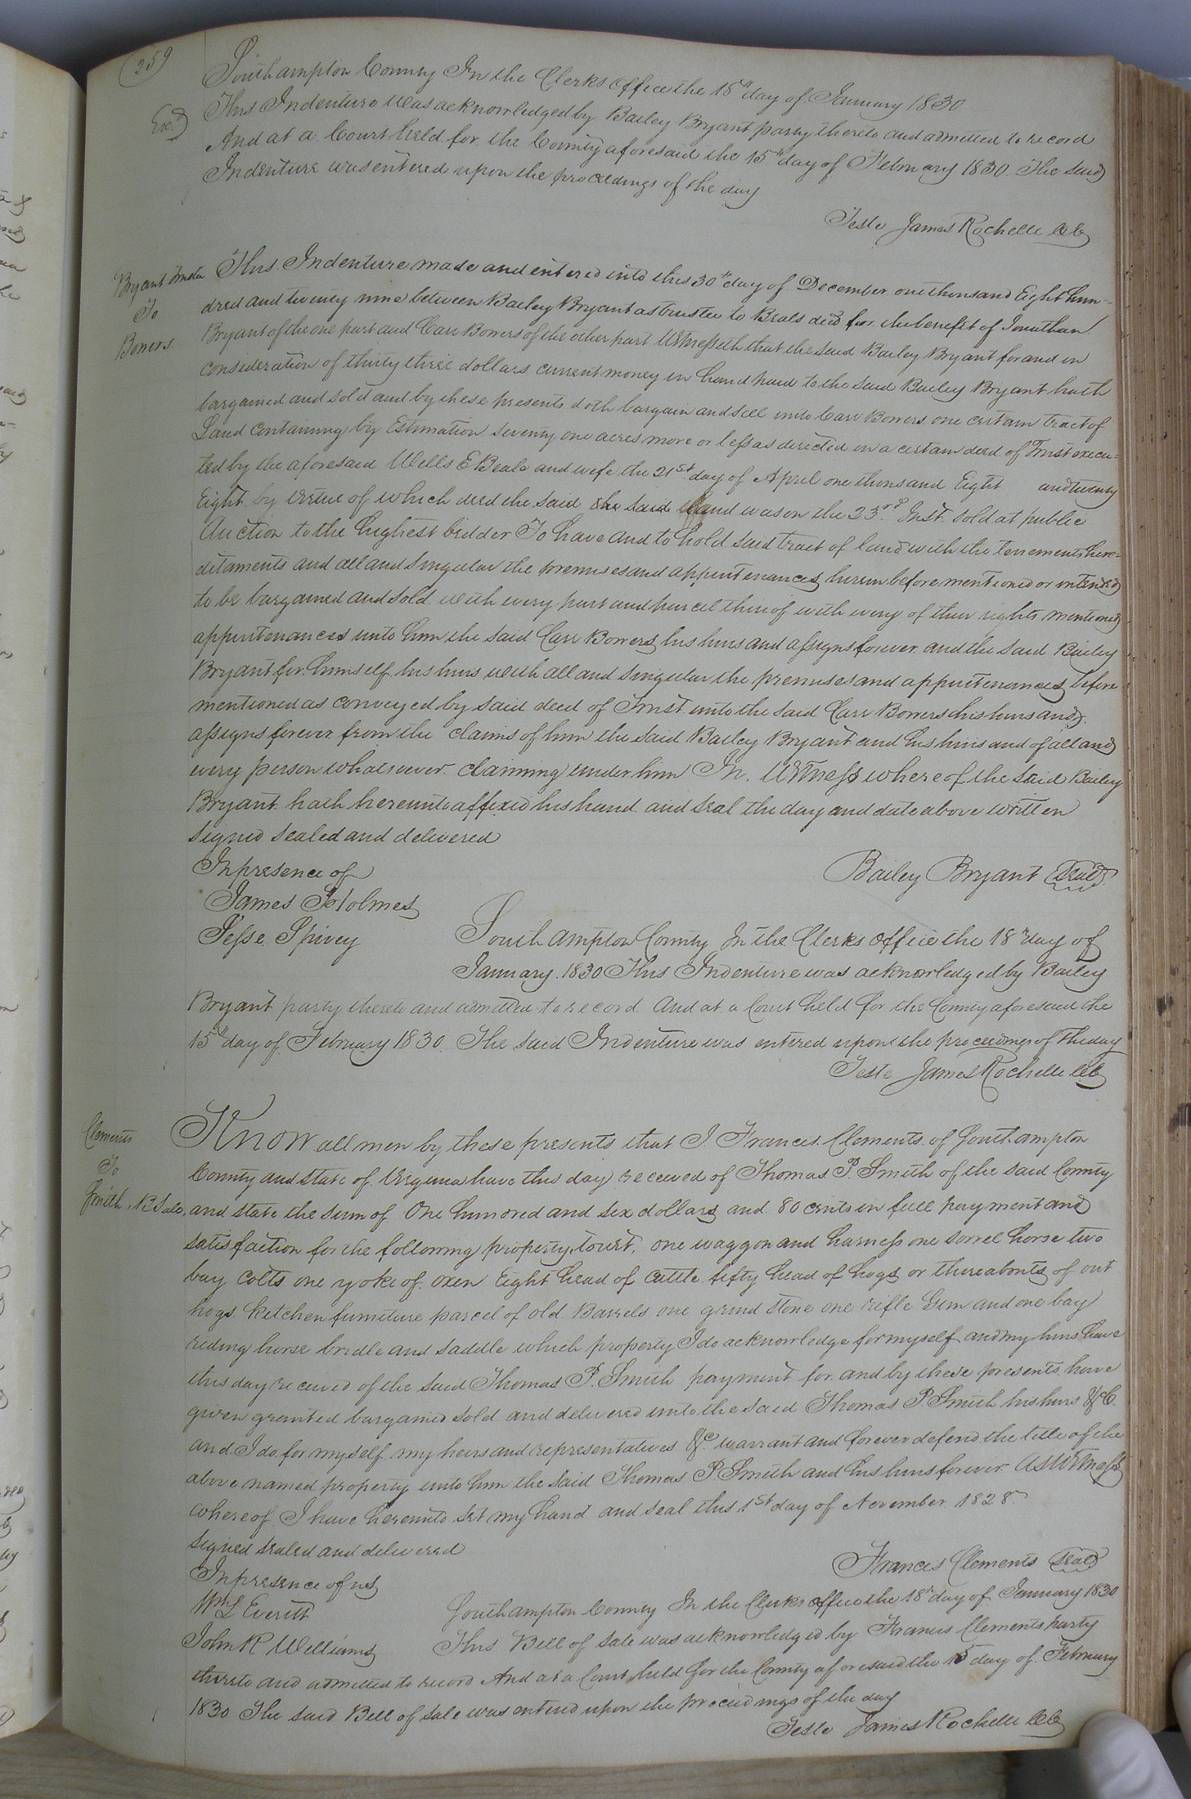 259
Southampton County In the Clerks office the 18th day of January 1830
Exd
This Indenture was acknowledged by Bailey Bryant party thereto and admitted to record
And at a Court held for the County aforesaid the 15th day of February 1830. The said
Indenture was entered upon the proceedings of the day
Teste James Rochelle CC
Bryant Trustee
To
Bowers
This Indenture made and entered into this 30th day of December one thousand Eight hun-
dred and twenty nine between Bailey Bryant as trustee to Beals deed for the benefit of Jonathan
Bryant of the one part and Carr Bowers of the other part Witnesseth that the said Bailey Bryant for and in
consideration of thirty three dollars current money in hand paid to the said Bailey Bryant hath
bargained and sold and by these presents doth bargain and sell unto Carr Bowers one certain tract of
Land containing by Estimation seventy one acres more or less as directed in a certain deed of Trust execu-
ted by the aforesaid Wells E Beale and wife the 21st day of April one thousand Eight and twenty
Eight by virtue of which deed the said the said land was on the 23rd Inst. sold at public
Auction to the highest bidder To have and to hold said tract of land with the tenements here-
ditaments and all and singular the premises and appurtenances herein before mentioned or intended
to be bargained and sold with every part and parcel thereof with every of their rights mentioned
appurtenances unto him the said Carr Bowers his heirs and assigns forever and the said Bailey
Bryant for himself his heirs with all and singular the premises and appurtenances before
mentioned as conveyed by said deed of Trust unto the said Carr Bowers his heirs and
assigns forever from the claims of him the said Bailey Bryant and his heirs and of all and
every person whatsoever claiming under him In Witness whereof the said Bailey
Bryant hath hereunto affixed his hand and seal the day and date above written
signed sealed and delivered
In presence of
Bailey Bryant Seal
James Holmes
Jesse Spivey
Southampton County In the Clerks office the 18th day of
January 1830 This Indenture was acknowledged by Bailey
Bryant party thereto and admitted to record And at a Court held for the County aforesaid the
15th day of February 1830 The said Indenture was entered upon the proceedings of the day
Teste James Rochelle CC
Clements
To
Smith B Sale
Know all men by these presents that I Francis Clements of Southampton
County and State of Virginia have this day received of Thomas P. Smith of the said County
and state the sum of One hundred and six dollars and 80 cents in full payment and
satisfaction for the following property, towit, one waggon and harness one sorrel horse two
bay colts one yoke of oxen Eight head of cattle fifty head of hogs or thereabouts of out
hogs kitchen furniture parcel of old Barrels one grind stone one rifle Gun and one bay
riding horse bridle and saddle which property I do acknowledge for myself and my heirs have
this day received of the said Thomas P. Smith payment for and by these presents have
given granted bargained sold and delivered unto the said Thomas P Smith his heirs &C
and I do for myself my heirs and representatives &c warrant and forever defend the title of the
above named property unto him the said Thomas P Smith and his heirs forever As Witness
whereof I have hereunto set my hand and seal this 1st day of November 1828.
signed sealed and delivered
Francis Clements Seal
In presence of us
Wm L Everitt
Southampton County In the Clerks office the 18th day of January 1830
John R Williams
This Bill of sale was acknowledged by Francis Clements party
thereto and admitted to record And at a Court held for the County aforesaid the 15 day of February
1830 The said Bill of sale was entered upon the proceedings of the day
Teste James Rochelle CC